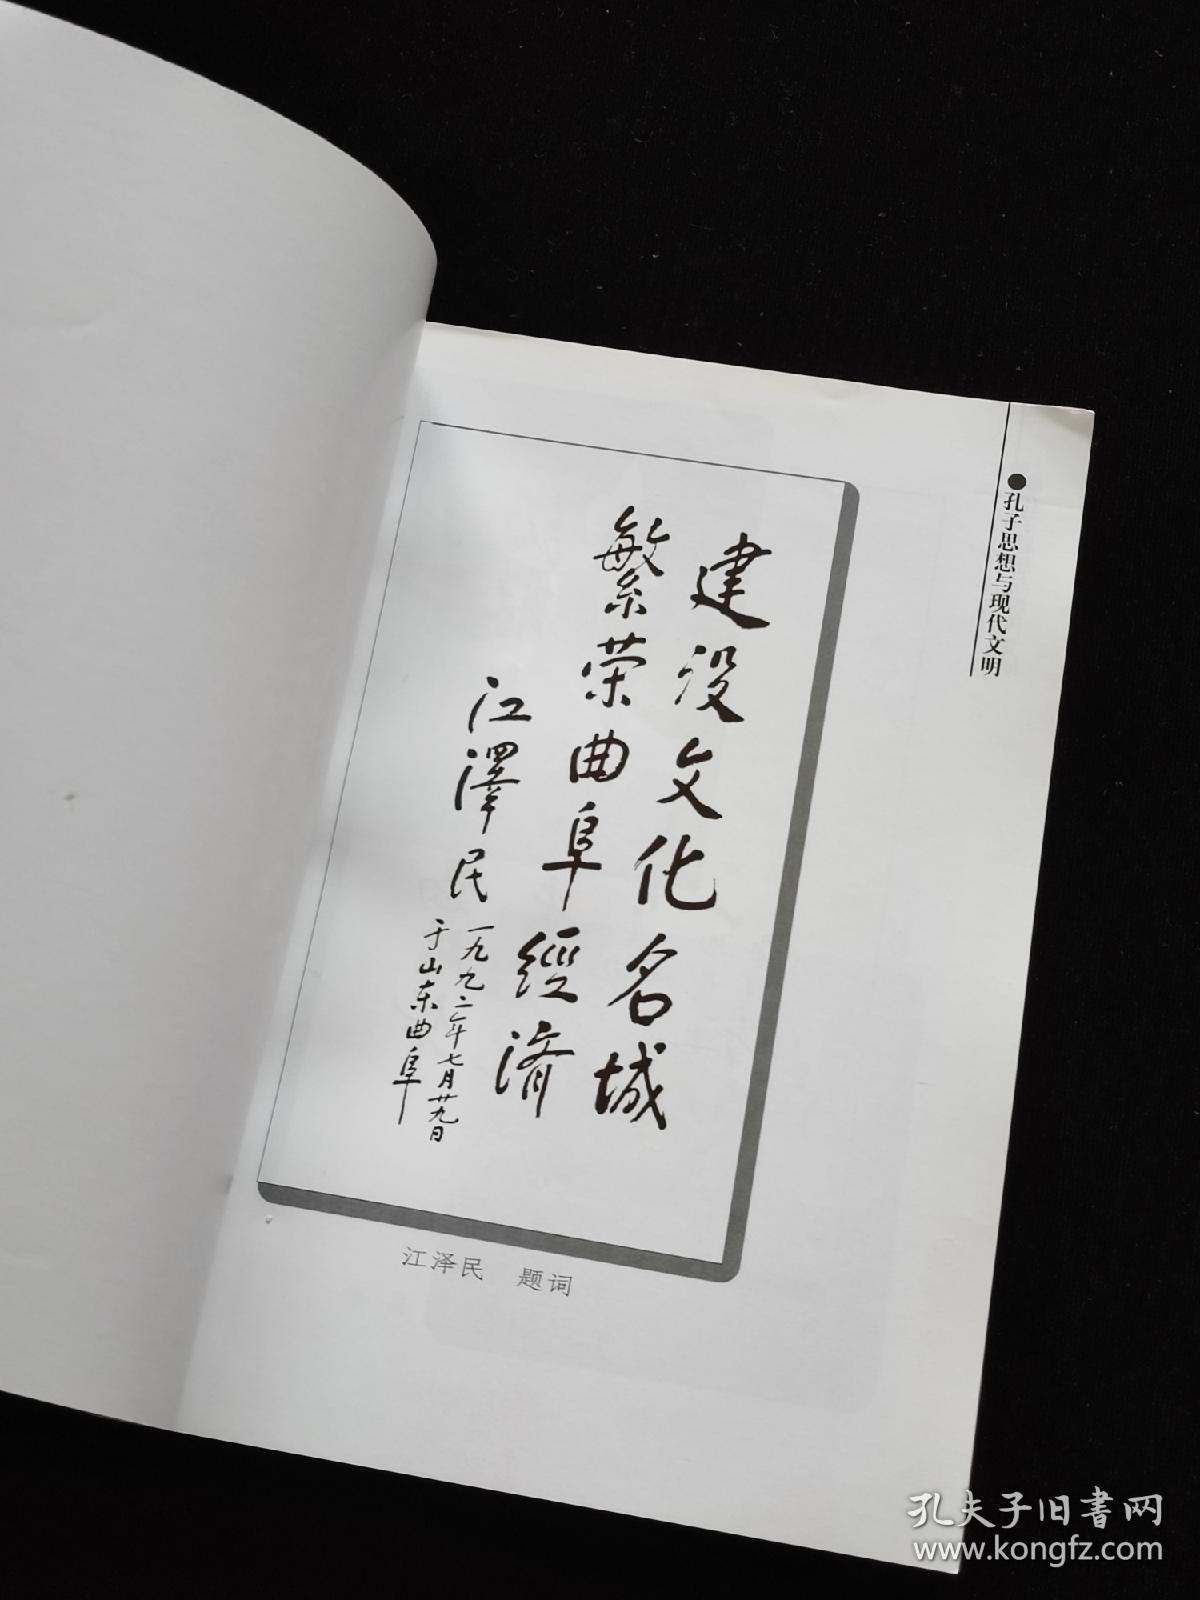 孔子思想与现代文明
建设文化名城
繁荣曲阜經济
江澤民
一九九二年七月廿九日
于山东曲阜
江泽民 题词
孔夫子旧書网
www.kongfz.com